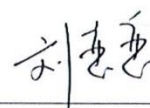 刘惠惠